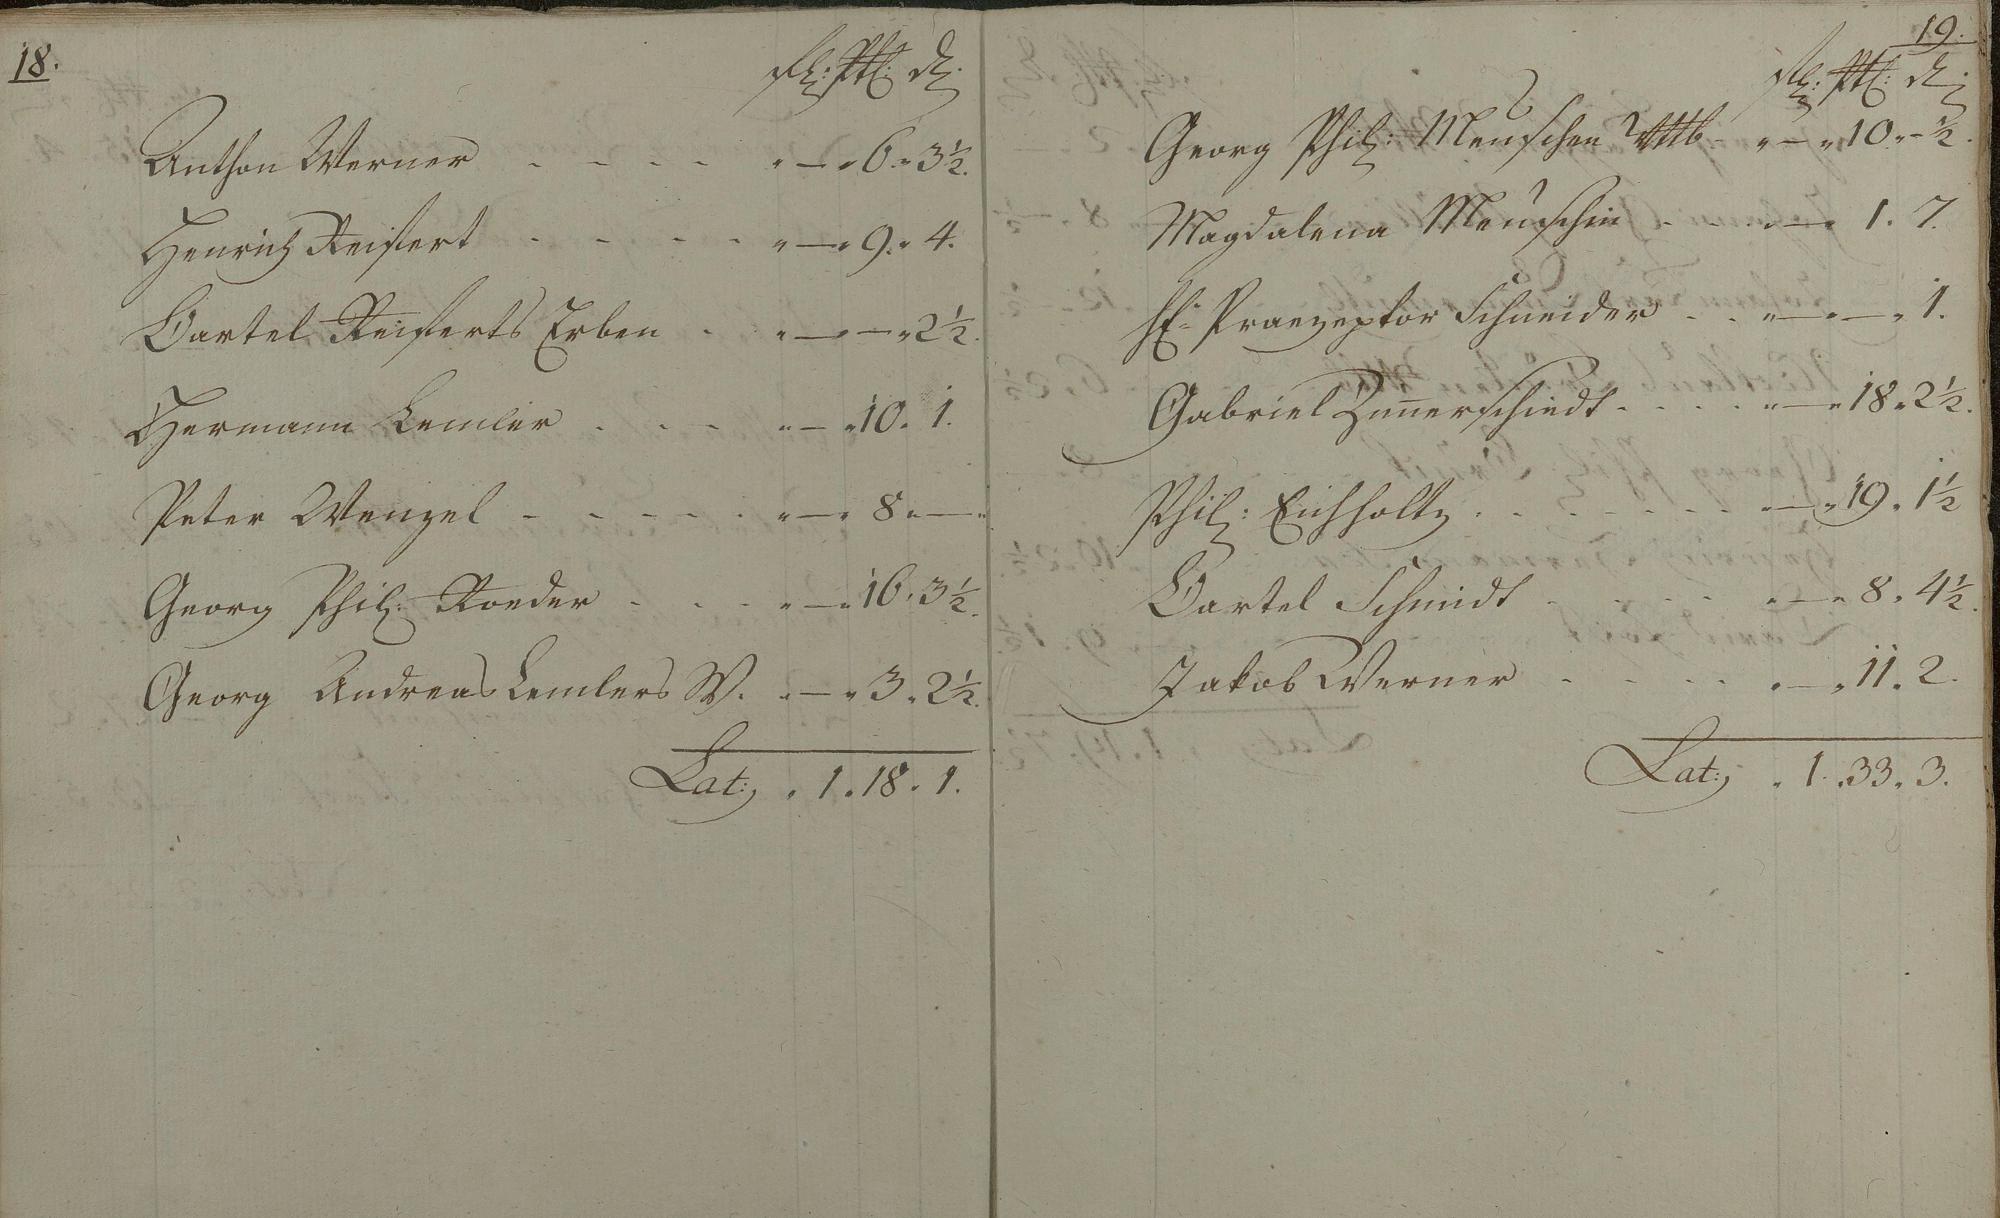 18.
fl: ttl: d.
Anthon Werner - - - - " — " 6. " 3½.
Henrich Reifert - - - - " — " 9. " 4.
Bartel Reiferts Erben . " — " — " 2½.
Hermann Lemler . - - " — " 10. 1.
Peter Wenzel - - - - - " — " 8 " — "
Georg Phil: Roeder - - - " — " 16. 3½.
Georg Andreas Lemlers W. " — " 3. 2½.
Lat: " 1. 18. 1.
19.
fl: ttl: d.
Georg Phil: Meuschen Wttb - " — " 10 " — ½.
Magdalena Meuschin - - - " — " 1. 7.
H: Praezeptor Schneider . . " — " — " 1.
Gabriel Zimerschiedt - - - - " — " 18. 2½.
Phil: Eichholtz . - - - - - " — " 19. 1½
Bartel Schmidt - - - - " — " 8. 4½.
Jakob Werner - - - - " — " 11. 2.
Lat: " 1. 33. 3.